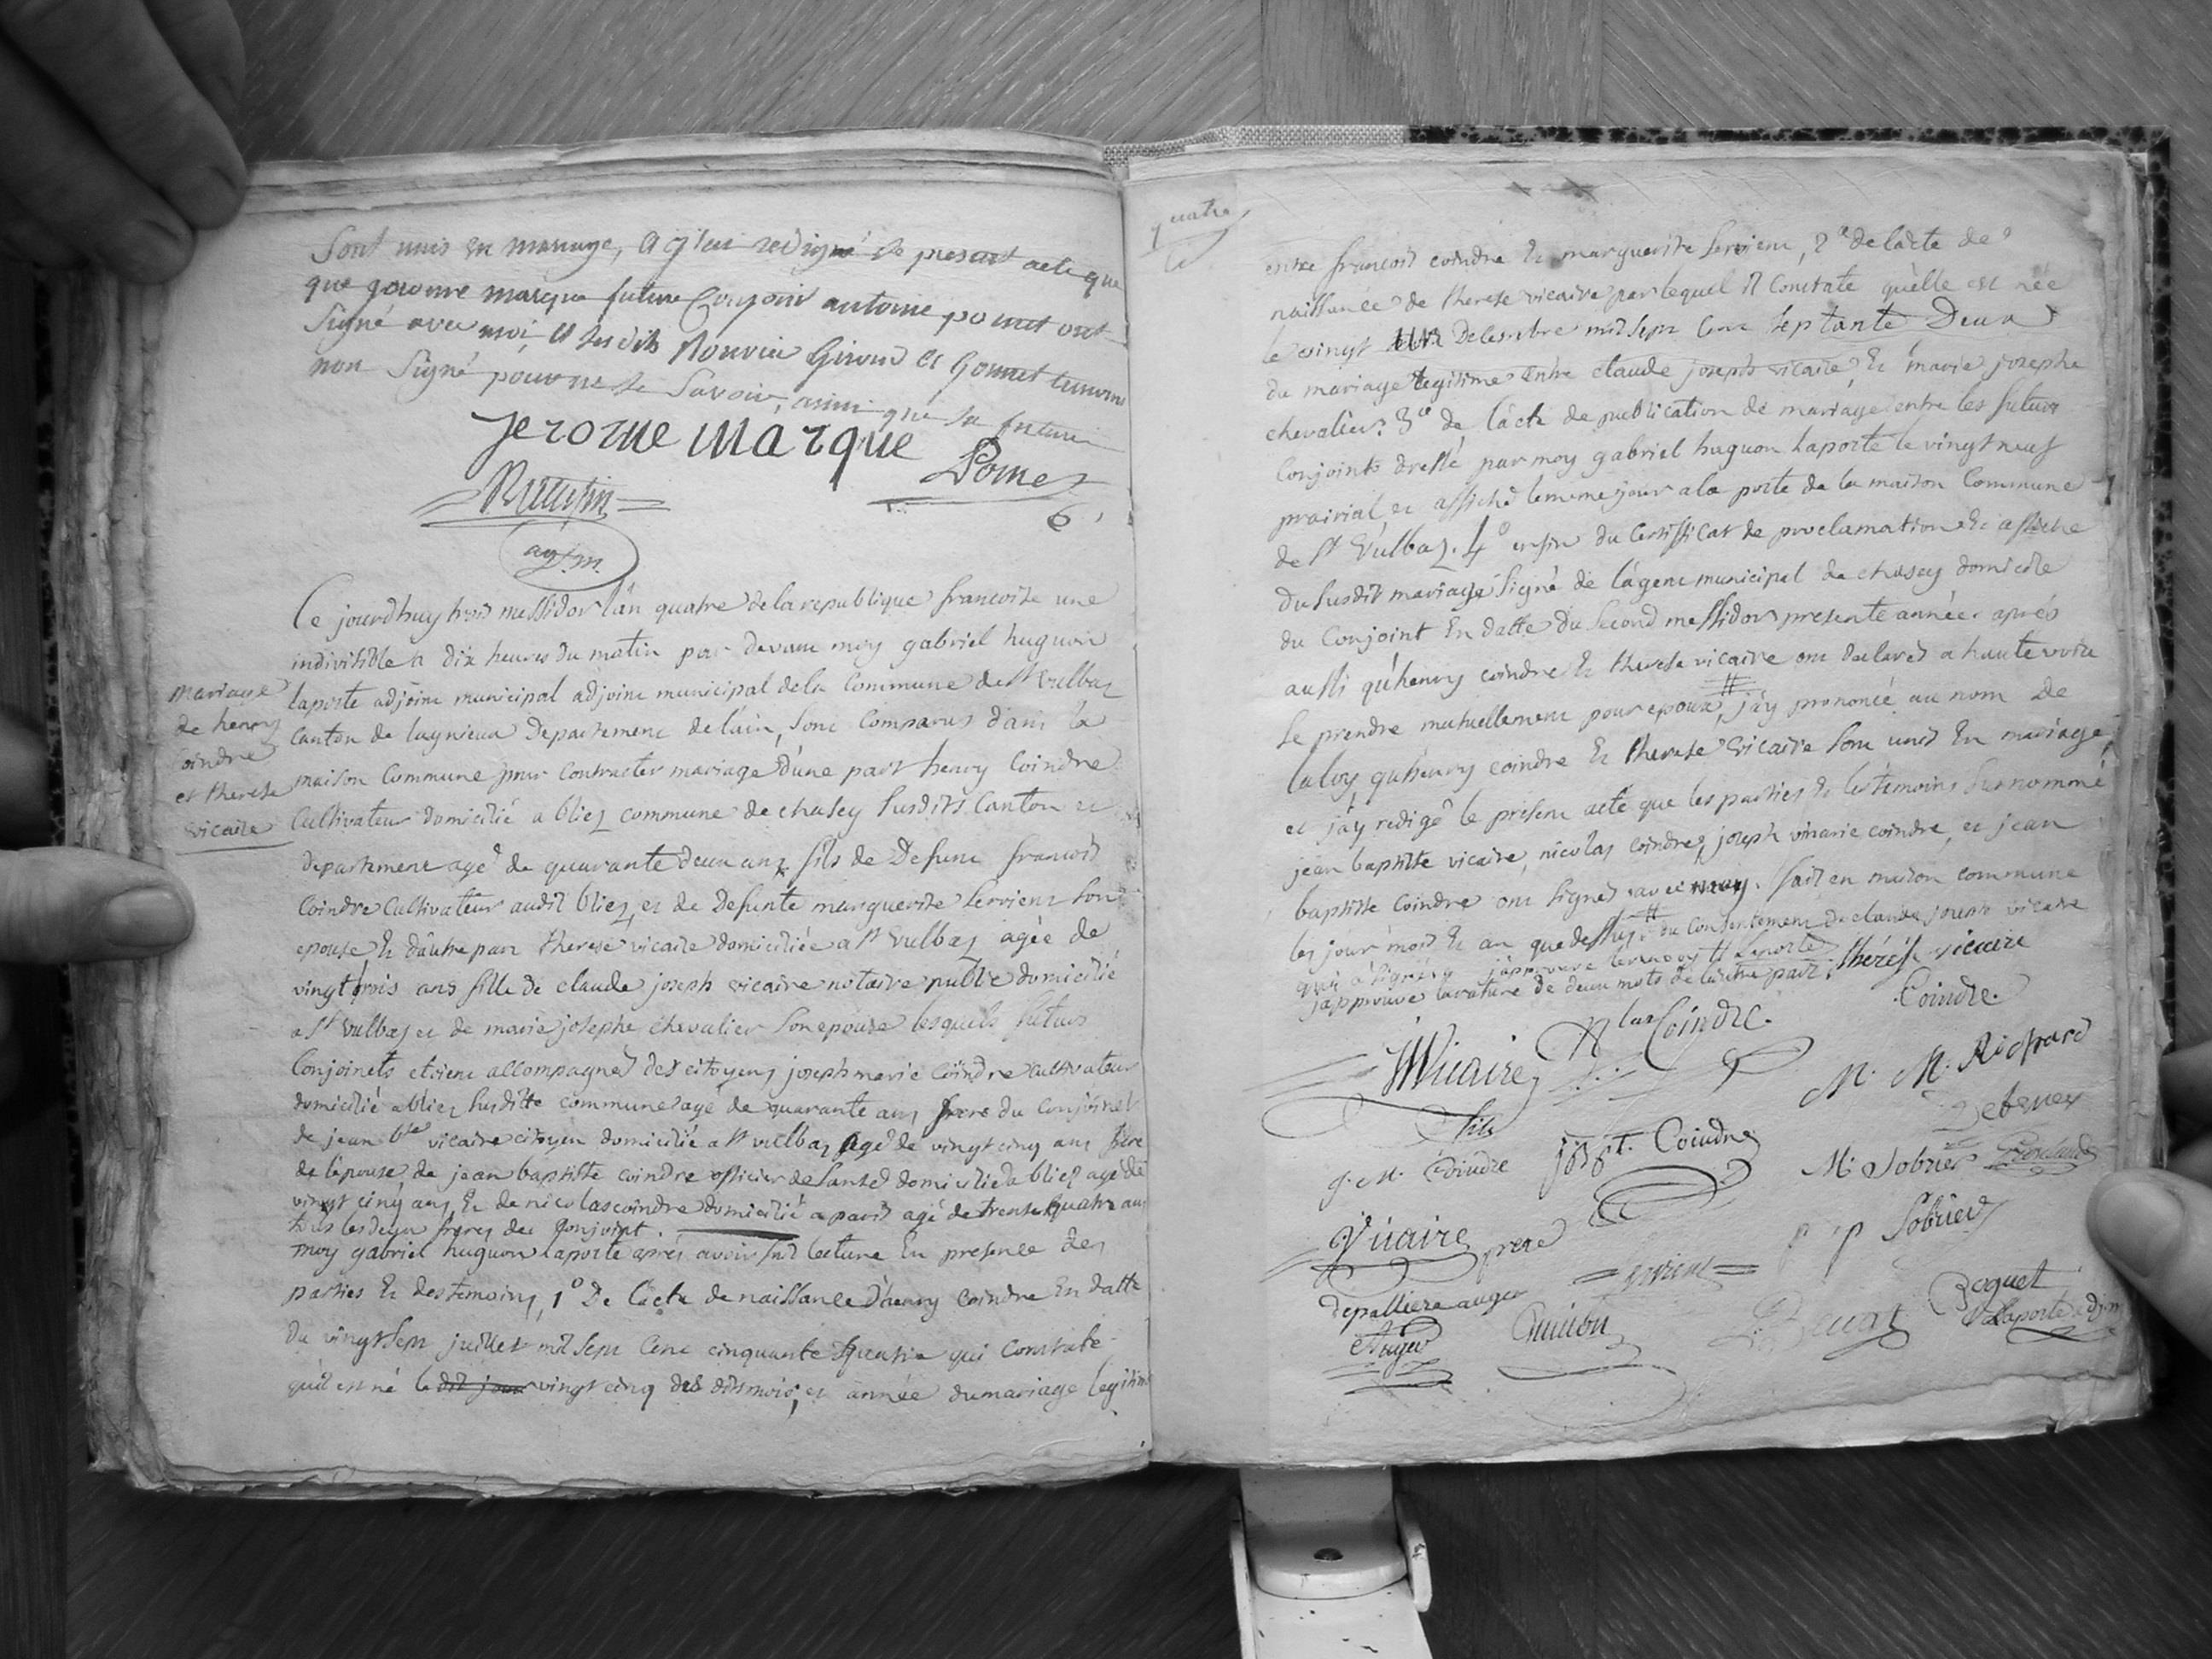 Sont unis en mariage, et j'ai redigé le present acte que
que jerome marque futur Conjoint antoine pomet ont
Signé avec moi, et les dits Bouvier Giroud et Gonnet temoins
non Signé pour ne le Savoir, ainsi que la future
Jerome Marque
Pomet
ag. m.
Ce jourdhuy trois messidor l'an quatre de la republique francoise une
indivisible a dix heures du matin par devant moy gabriel huguon
laporte adjoint municipal adjoint municipal de la Commune de St Vulbaz
Canton de lagnieux Departement de l'ain, sont Comparus dans la
maison Commune pour Contracter mariage d'une part henry Coindre
Cultivateur domicilié a bliez commune de chasey susdits Canton et
departement agé de quarante deux ans fils de Defunt francois
Coindre Cultivateur audit bliez, et de Defunte marguerite servient son
epouse, et d'autre part therese vicaire domiciliée a St vulbaz agée de
vingt trois ans fille de claude joseph vicaire notaire public domicilié
a St vulbaz et de marie josephe chevalier son epouse lesquels futurs
Conjoints etoient accompagnés des citoyens joseph marie Coindre cultivateur
domicilié a bliez susditte commune agé de quarante ans frere du conjoint
de jean bte vicaire citoyen domicilié a St vulbaz agé de vingt cinq ans frere
de l'epouse, de jean baptiste coindre officier de santé domicilié a bliez agé de
vingt cinq ans et de nicolas coindre domicilié a paris agé de trente quatre ans
tous les deux freres du Conjoint.
moy gabriel huguon laporte aprés avoir fait lecture en presence des
parties et des temoins, 1o De l'acte de naissance d'henry coindre en datte
du vingt sept juillet mil sept cent cinquante quatre qui Constate
qu'il est né le dit jour vingt cinq des dits mois, et année du mariage legitime
mariage
de henry
Coindre
et therese
vicaire
quatre
entre francois coindre et marguerite servient, 2e de l'acte de
naissance de therese vicaire par lequel il Constate qu'elle est née
le vingt Decembre mil sept cent septante Deux
du mariage legitime entre claude joseph vicaire, et marie josephe
chevalier. 3e de l'acte de publication de mariage entre les futurs
Conjoints dressé par moy gabriel huguon laporte le vingt neuf
prairial, et affiché le meme jour a la porte de la maison Commune
de St Vulbaz. 4o enfin du Certifficat de proclamation et affiche
du susdit mariage signé de l'agent municipal de chasey domicile
du Conjoint en datte du second messidor presente année. aprés
aussi qu'henry coindre et therese vicaire ont declaré a haute voix
se prendre mutuellement pour epoux, # j'ay prononcé au nom de
la loy qu'henry coindre et therese vicaire sont unis en mariage,
et j'ay redigé le present acte que les parties et les temoins susnommé
jean baptiste vicaire, nicolas coindre, joseph marie coindre, et jean
baptiste Coindre ont signés avec moy. fait en maison commune
les jour mois et an que dessus. # du consentement de claude joseph vicaire
qui a signé j'approuve le renvoy # Laporte
j'approuve la rature de deux mots de l'autre part. thérése vicaire
Coindre.
Vicaire fils
Nlas Coindre.
M. M. Richard
j. M. Coindre
j. Bpt. Coindre
M. Sobrier
Vicaire pere
Servient
p p Sobrier
depalliere auger
Auger
Quinion
Boguet
Laporte adj. m.